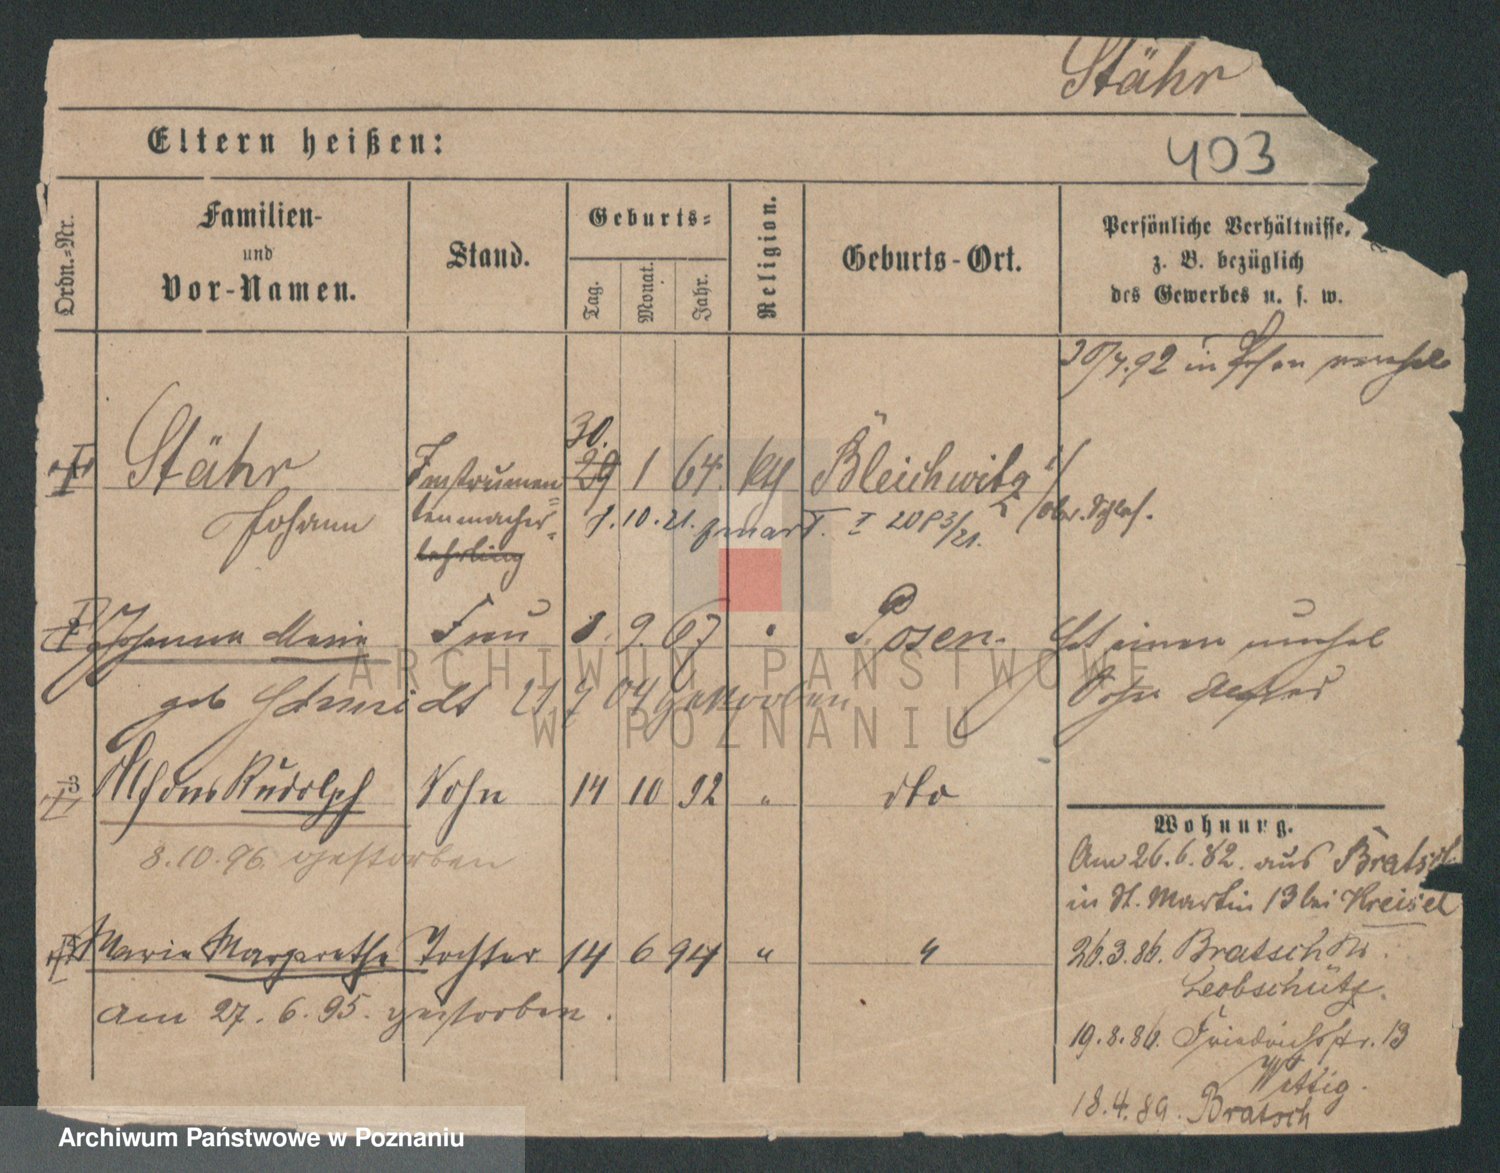 Stähr
403
Eltern heißen:
Ordn.-Nr.
Familien-
und
Vor-Namen.
Stand.
Geburts-
Tag.
Monat.
Jahr.
Religion.
Geburts-Ort.
Persönliche Verhältnisse,
z. B. bezüglich
des Gewerbes u. s. w.
30/4.92 in Posen verehel
I Stähr Instrumen 30. 29 1 64. ktl Bleichwitz
Johann tenmacher- 1.10.21. 20 P 3/21. Ober. Schles.
lehrling
Johanna Maria Frau 8. 9. 67 Posen. Hat einen unehel
geb Schmidt 21 7 04 gestorben Sohn
3 Alfons Rudolph Sohn 14 10 92 " dto
8.10.96. gestorben
Marie Margarethe Tochter 14 6 94 " "
am 27.6.95. gestorben.
Wohnung.
Am 26.6.82. aus Bratsch
in St. Martin 13 bei Kreisel
26.3.86. Bratsch Kr.
Leobschütz.
19.8.86. Friedrichstr. 13
Wittig.
18.4.89. Bratsch
ARCHIWUM PAŃSTWOWE
W POZNANIU
Archiwum Państwowe w Poznaniu